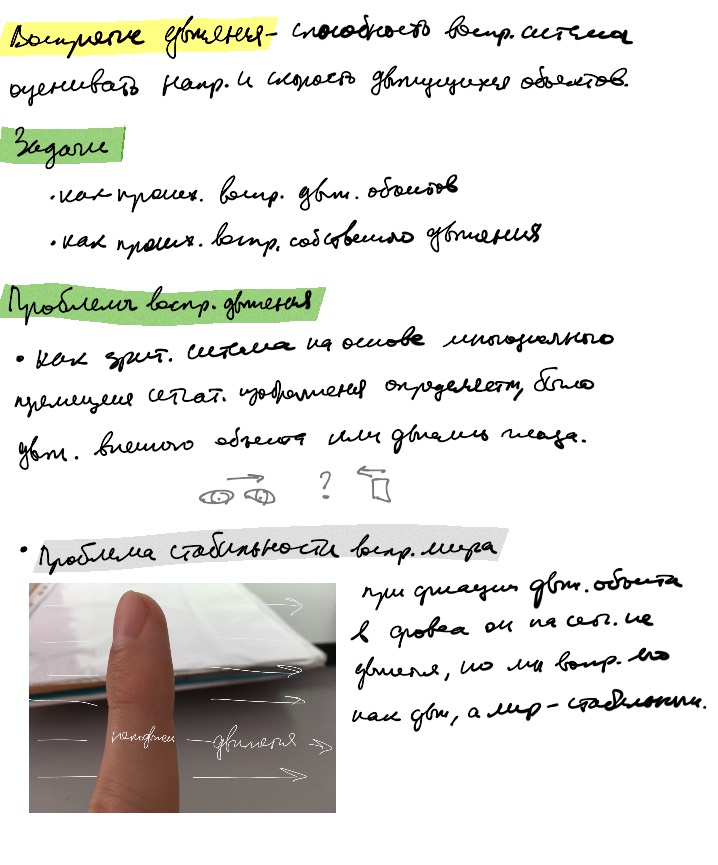 Восприятие движения - способность воспр. системы
оценивать напр. и скорость движущихся объектов.
Задачи
• как происх. воспр. движ. объектов
• как происх. воспр. собственного движения
Проблемы воспр. движения
• как зрит. система на основе
перемещения сетчат. изображения определяет, было
движ. внешнего объекта или двигались глаза.
?
• Проблема стабильности воспр. мира
при фиксации движ. объекта
в фовеа он на сетч. не
движется, но мы воспр. его
как движ, а мир - стабильным.
неподвижен движется